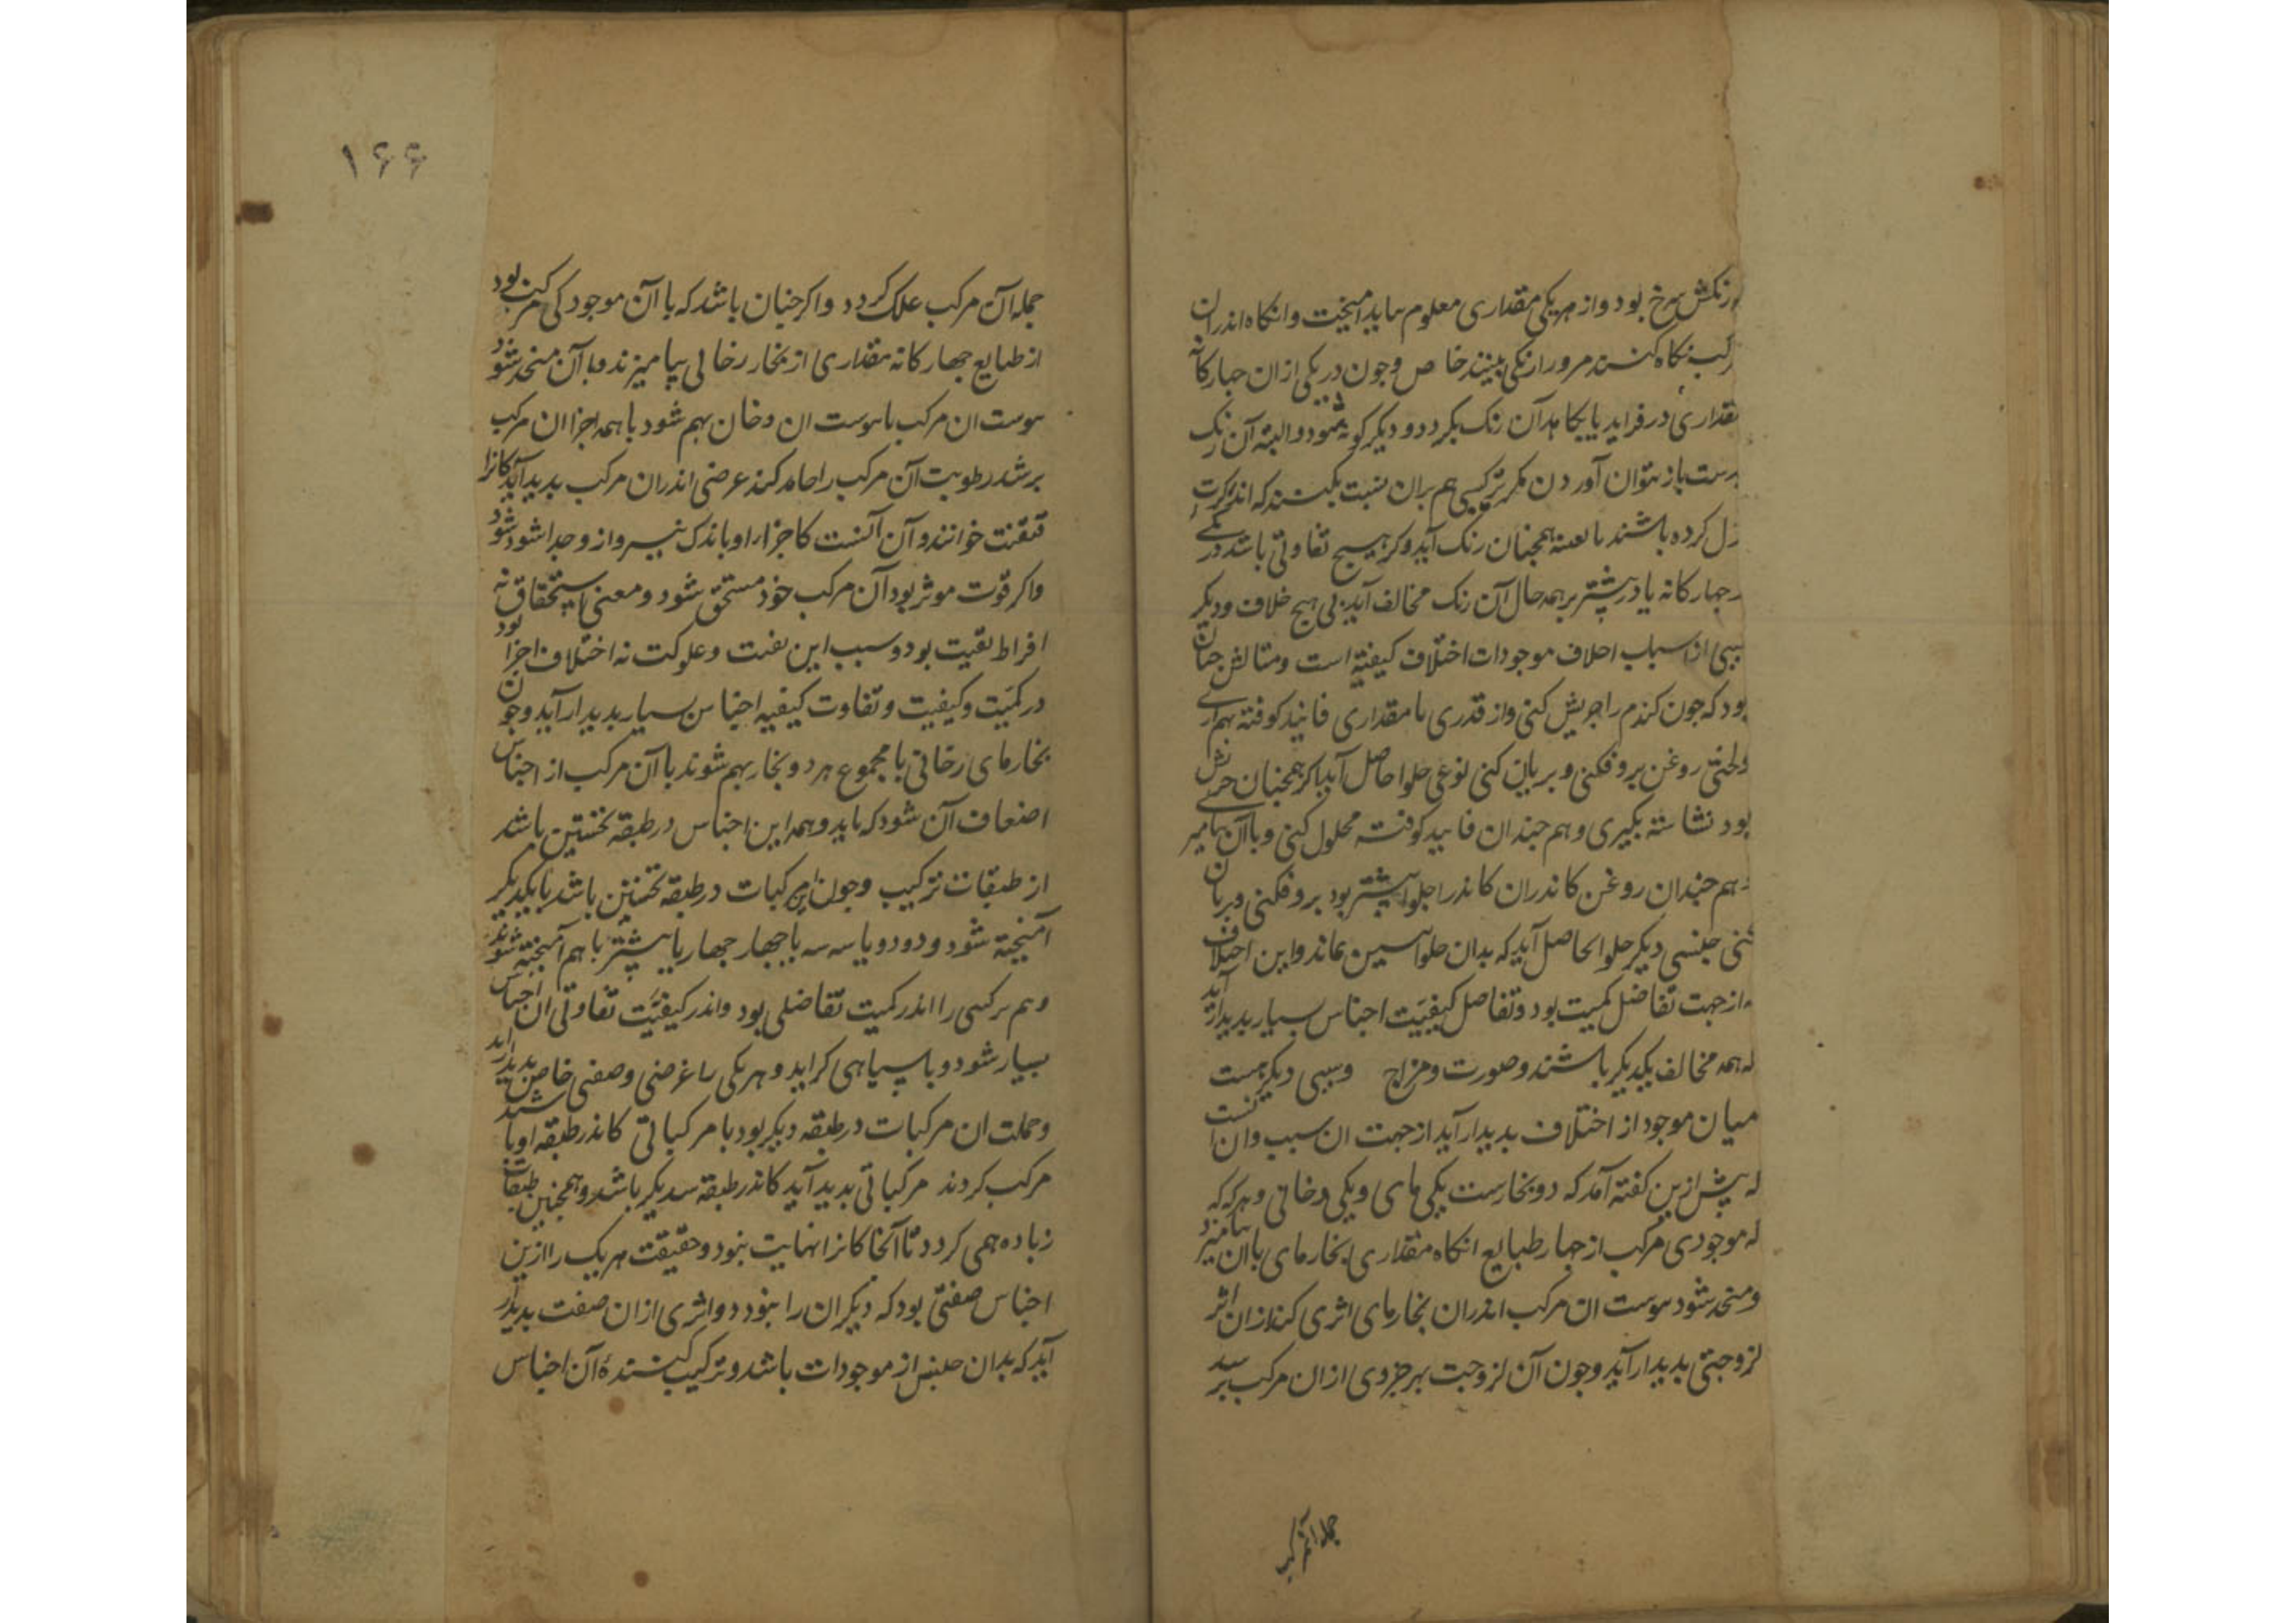 رنکش سرخ بود و از هر یکی مقداری معلوم بباید آمیخت و انکاه اندران
نکاه کنند مر ورا رنکی بینند خاص و جون در یکی از ان جهارکانه
مقداری درفزاید یا بکاهد آن رنک بکردد و دیکر کونه شود و البته آن رنک
باز نتوان آوردن مکر ترکیبی هم بران نسبت بکنند که اندر
کرده باشند تا بعینه همجنان رنک آید و کر هیچ تفاوتی باشد در یکی
جهارکانه یا در بیشتر بر همه حال آن رنک مخالف آید بی هیچ خلاف و دیکر
سببی از اسباب اختلاف موجودات اختلاف کیفیته است و مثالش جنان
بود که جون کندم را جریش کنی و از قدری با مقداری فانید کوفته بهم آری
و لختی روغن برو فکنی و بریان کنی نوعی حلوا حاصل آید اکر همجنان
بود نشاسته بکیری و هم جندان فانید کوفته محلول کنی و با آن بیامیزی
و هم جندان روغن کاندران کاندر حلوا بیشتر بود برو فکنی و بریان
کنی جنسی دیکر حلوا حاصل آید که بدان حلوا بسین نماند و این اختلاف
از جهت تفاضل کمیت بود و تفاضل کیفیت اجناس بسیار بدیدار آید
که همه مخالف یکدیکر باشند و صورت و مزاج و سببی دیکر هست
میان موجود از اختلاف بدیدار آید از جهت ان سبب و ان انست
که بیش ازین کفته آمد که دو بخارست یکی مای و یکی دخانی و هرکه که
که موجودی مرکب از جهار طبایع انکاه مقداری بخار مای با ان بیامیزد
و متحد شود یبوست ان مرکب اندران بخار مای اثری کند از ان اثر
لزوجتی بدیدار آید و جون آن لزوجت بهر جزوی از ان مرکب برسد
جمله آن مرکب
۱۶۶
جمله آن مرکب علک کردد و اکر جنان باشد که با آن موجود کی مرکب بود
از طبایع جهارکانه مقداری از بخار دخانی بیامیزند و با آن متحد شود
یبوست ان مرکب با یبوست ان دخان بهم شود با همه اجزا ان مرکب
برسد رطوبت آن مرکب را جامد کند عرضی اندران مرکب بدید آید کانرا
خوانند و آن آنست کاجزا را او باندک نیرو از و جدا شود
و اکر قوت موثر بود آن مرکب خود مستحق شود و معنی استحقاق نه
افراط بود و سبب این و علوکت نه اختلاف اجزا بود
در کمیت و کیفیت و تفاوت کیفیه اجناس بسیار بدیدار آید و جون
بخار مای دخانی با مجموع هر دو بخار بهم شوند با آن مرکب از اجناس
اضعاف آن شود که باید و همه این اجناس در طبقه نخستین باشد
از طبقات ترکیب و جون این مرکبات در طبقه نخستین باشد با یکدیکر
آمیخته شود و دو دو یا سه سه یا جهار جهار یا بیشتر با هم آمیخته شوند
و هم ترکیبی را اندر کمیت تفاضلی بود و اندر کیفیت تفاوتی ان اجناس
بسیار شود و با سیاهی کراید و هر یکی را عرضی و صفتی خاص بدیدار آید
و جملت ان مرکبات در طبقه دیکر بود با مرکباتی کاندر طبقه او باشند
مرکب کردند مرکباتی بدید آید کاندر طبقه سدیکر باشد و همجنین طبقات
زیاده همی کردد تا آنجا کانرا نهایت نبود و حقیقت هر یک را ازین
اجناس صفتی بود که دیکران را نبود و اثری از ان صفت بدیدار
آید که بدان جنس از موجودات باشد و ترکیب کنندهٔ آن اجناس